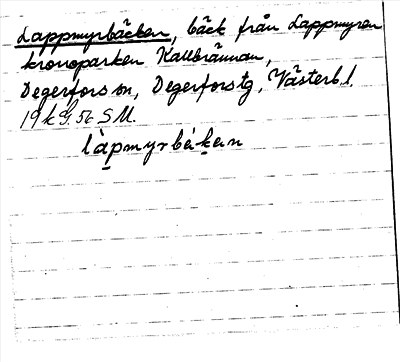 Lappmyrbäcken, bäck från Lappmyren
kronoparken Kallbrännan,
Degerfors sn, Degerfors tg, Västerb. l.
19 k G. 56 S M.
làpmyrbékɐn